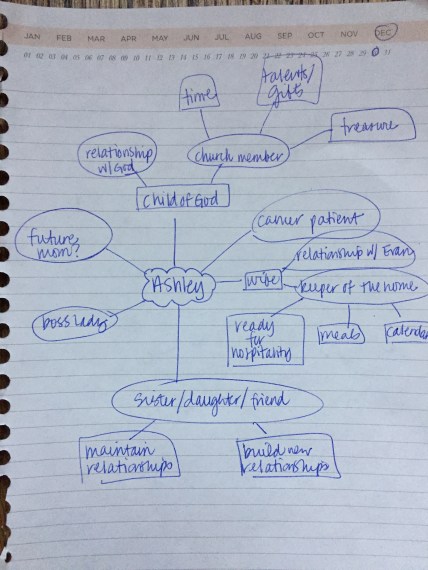 JAN FEB MAR APR MAY JUN JUL AUG SEP OCT NOV DEC
01 02 03 04 05 06 07 08 09 10 11 12 13 14 15 16 17 18 19 20 21 22 23 24 25 26 27 28 29 30 31
time
talents/
gifts
treasure
relationship
w/God
church member
Child of God
cancer patient
future
mom?
relationship w/ Evan
Ashley
wife
keeper of the home
boss lady
ready
for
hospitality
meals
calendar
sister/daughter/friend
maintain
relationships
build new
relationships